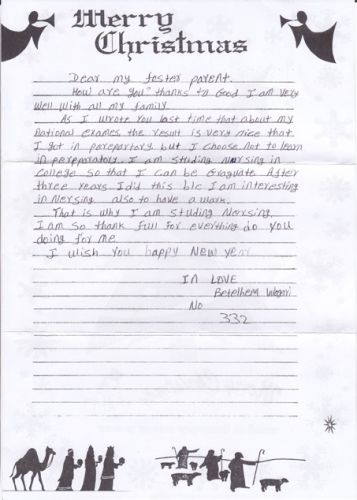 Merry
Christmas
Dear my foster parent.
How are you? thanks to Good I am very
well with all my family.
As I wrote you last time that about my
national exames the result is very nice that
I got in pereportory but I choose not to learn
in pereparatory. I am studing nursing in
college so that I can be Graguate After
three years. I did this b/c I am interesting
in Nersing also to have a work.
That is why I am studing Nersing.
I am so thank full for everthing do you
doing for me.
I wish you happy New year.
IN LOVE
Betelhem
No
332